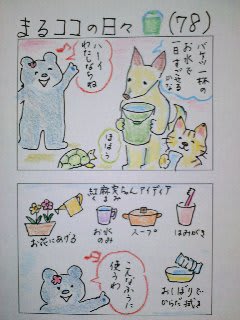 まるココの日々 (78)
バケツ一杯の
お水で
一日すごせる
のな
ハーイ
わたしならね
ほほう
紅麻実ちゃんアイディア
くまみ
お花にあげる
お水
のみ
スープ
はみがき
こんなふうに
使うわ
おしぼりで
からだ拭く